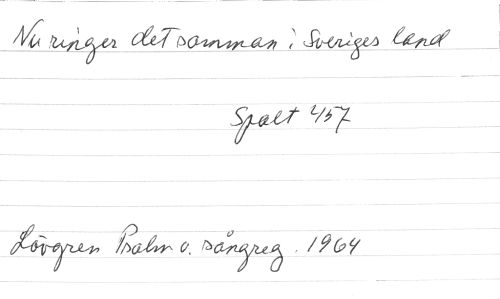 Nu ringer det samman i Sveriges land
Spalt 457
Lövgren Psalm o. sångreg. 1964